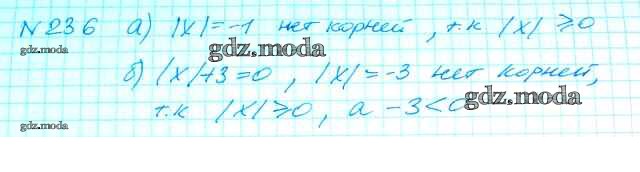 №236 а) |x|=-1 нет корней, т.к |x|⩾0
gdz.moda
gdz.moda
б) |x|+3=0, |x|=-3 нет корней,
т.к |x|⩾0, а -3<0
gdz.moda
gdz.moda